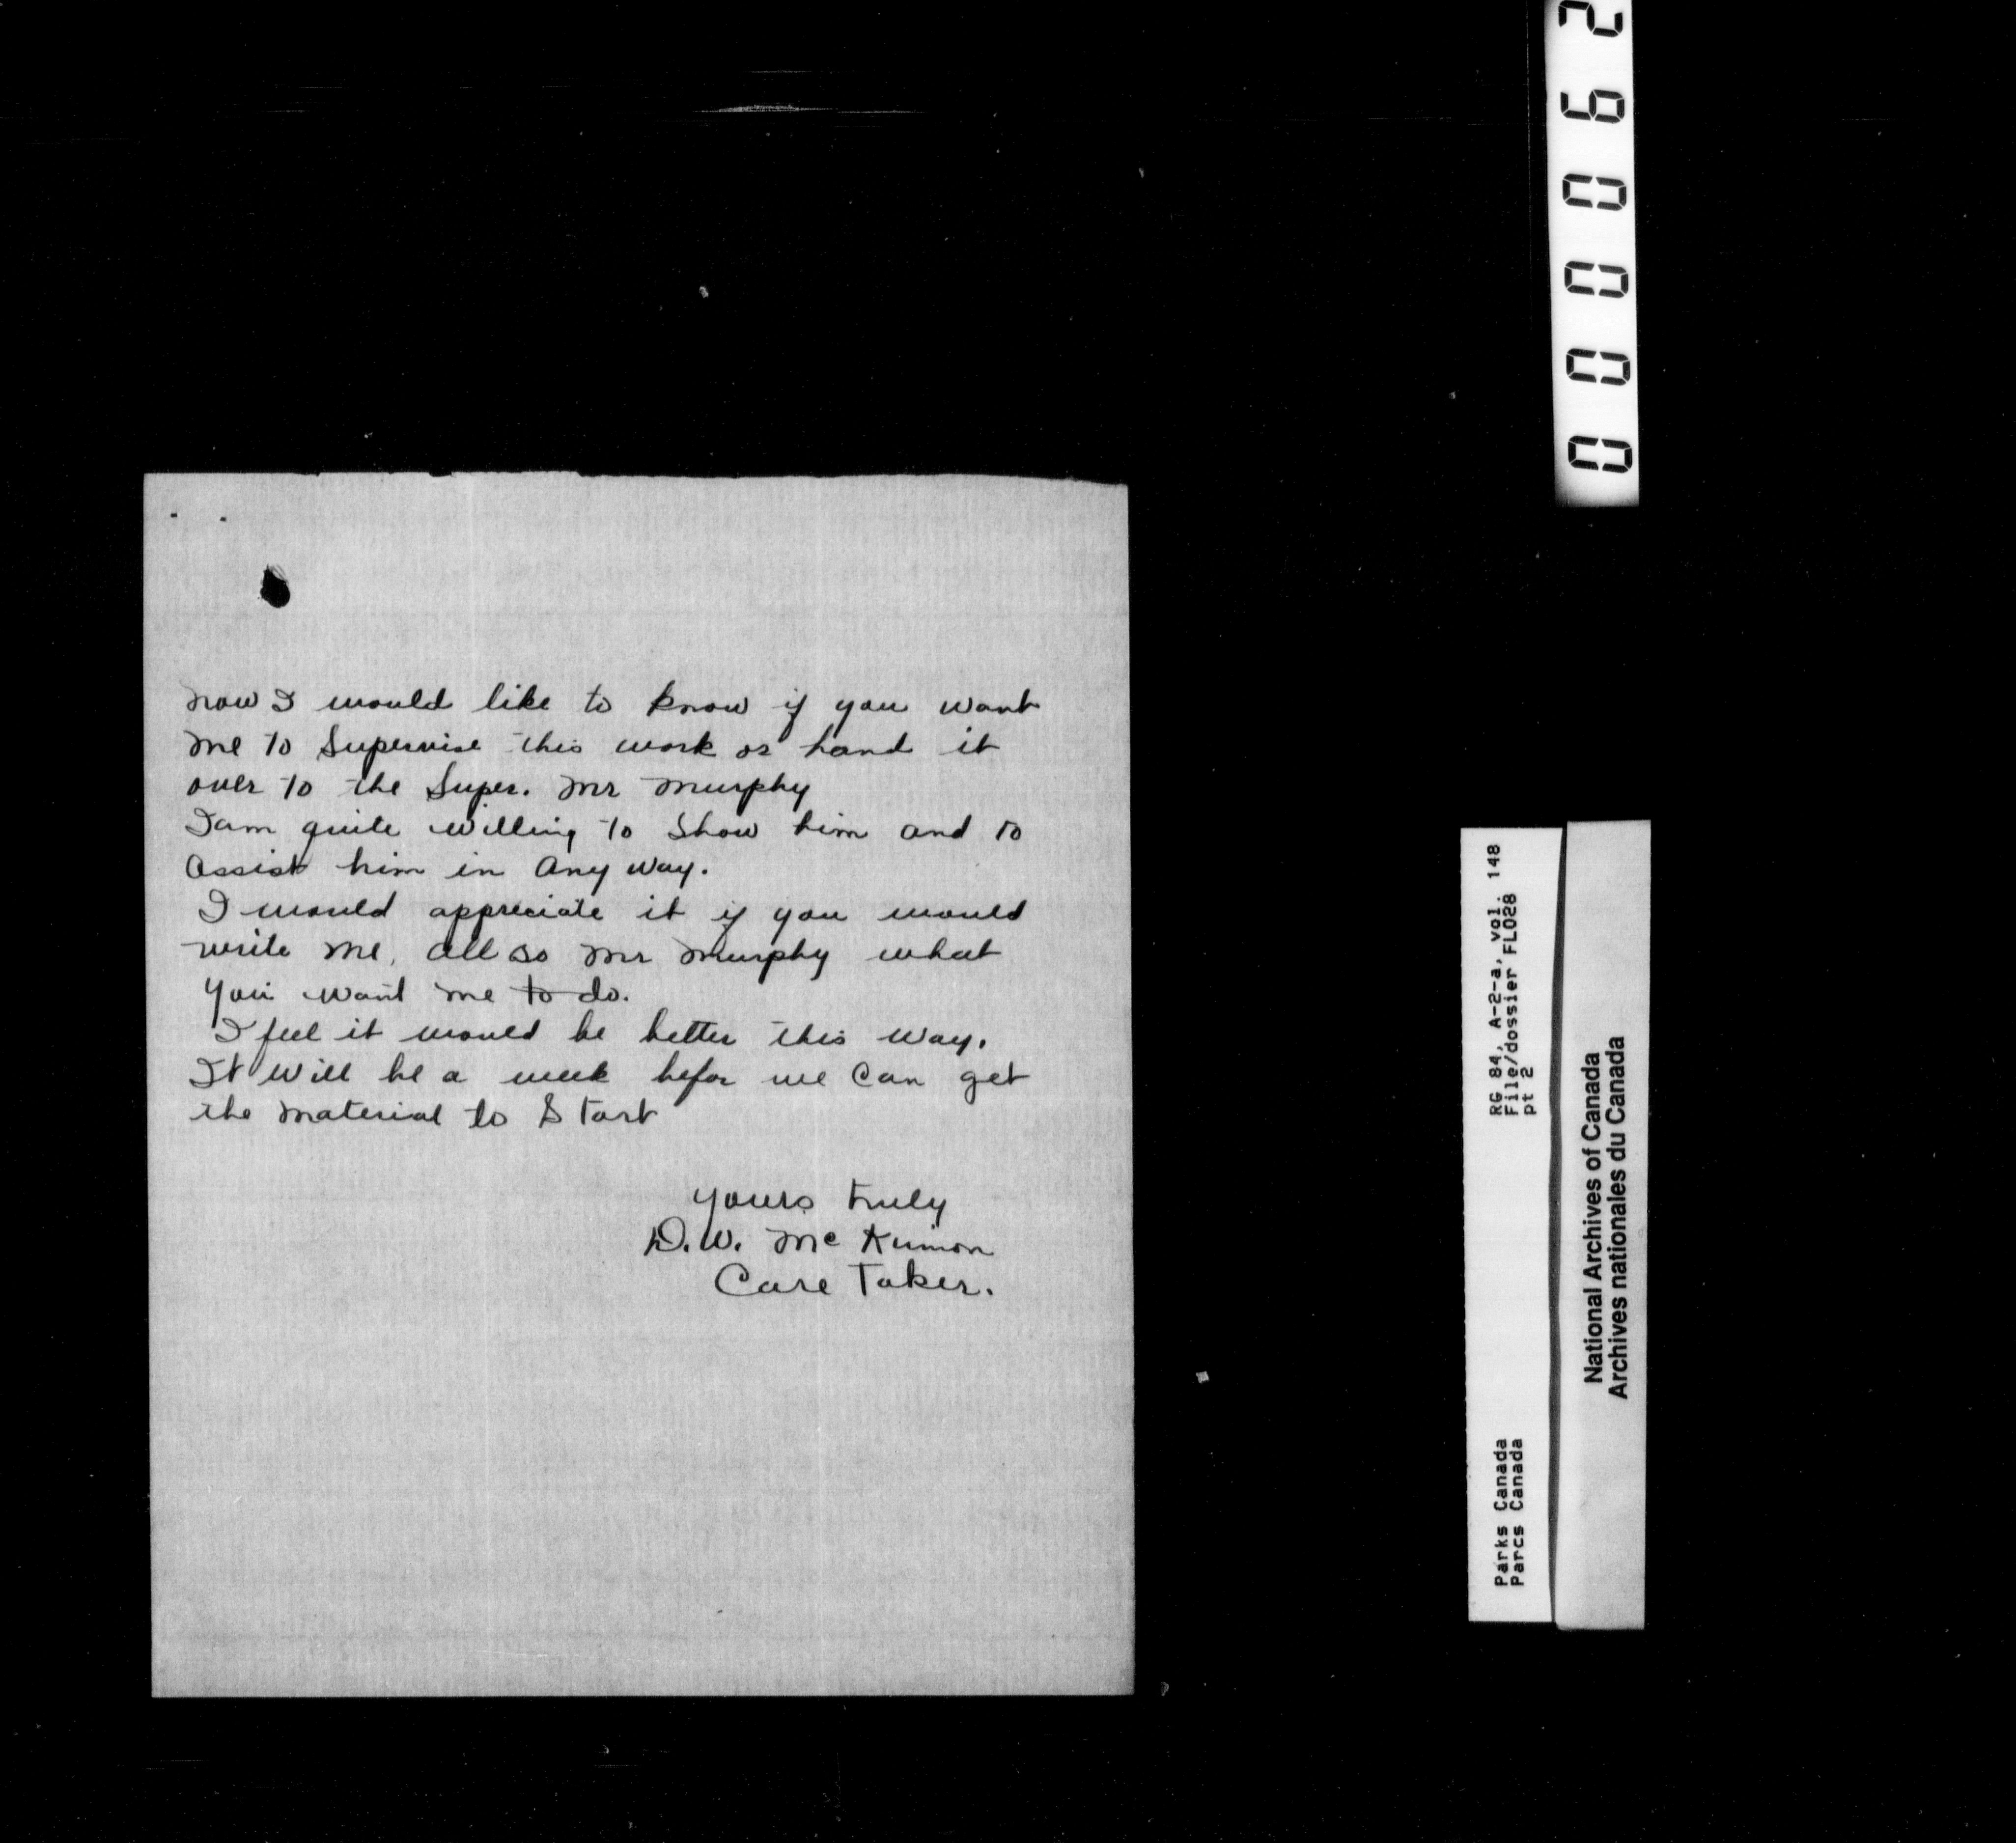 now I would like to know if you want
me to Supervise this work or hand it
over to the Super. Mr Murphy
I am quite willing to Show him and to
assist him in any way.
I would appreciate it if you would
write me, all so Mr Murphy what
you want me to do.
I feel it would be better this way.
It will be a week befor we Can get
the material to Start
yours truly
D. W. Mc Kinnon
Care Taker.
000062
RG 84, A-2-a, vol. 148
File/dossier FLO28
pt 2
Parks Canada
Parcs Canada
National Archives of Canada
Archives nationales du Canada